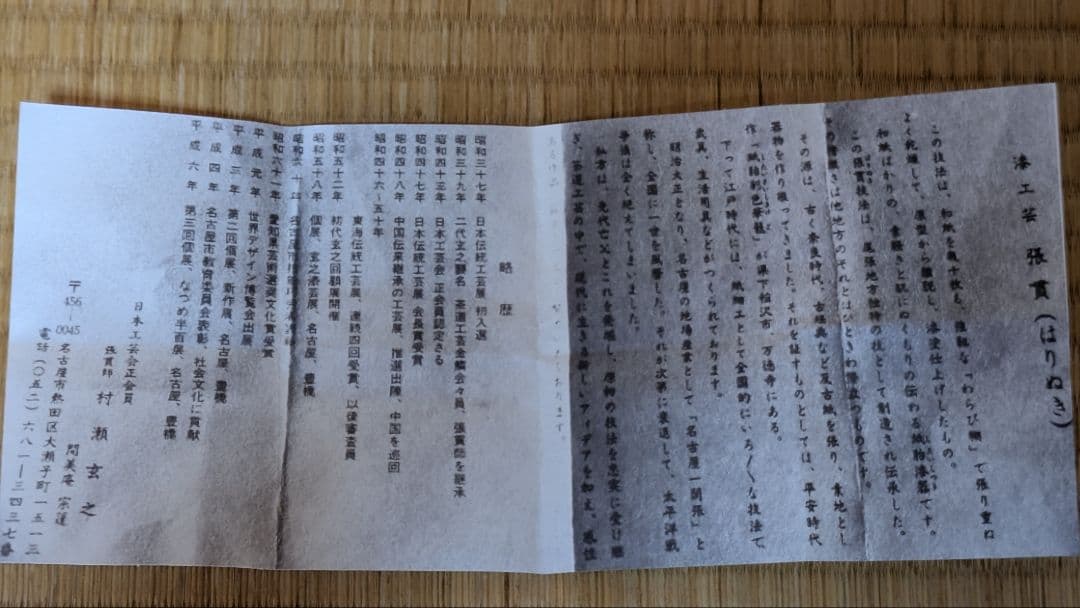 漆工芸 張貫(はりぬき)
この技法は、和紙を数十枚も、強靱な「わらび糊」で張り重ね
よく乾燥して、原型から離脱し、漆塗仕上げしたもの。
和紙ばかりの、素軽さと肌にぬくもりの伝わる紙胎漆器です。
この張貫技法は、尾張地方独特の技として創造され伝承した。
その精緻さは他地方のそれとはひときわ際立つものです。
その源は、古く奈良時代、古経典など反古紙を張り、素地とし
器物を作り漆ってきました。それを証すものとしては、平安時代
作「紙胎彩色華籠」が県下稲沢市、万徳寺にある。
下って江戸時代には、紙細工として全国的にいろ〱な技法で
武具、生活用具などがつくられております。
明治大正となり、名古屋の地場産業として「名古屋一閑張」と
称し、全国に一世を風靡した。それが次第に衰退して、太平洋戦
争後は全く絶えてしまいました。
私方は、先代亡父とこれを発掘し、原初の技法を忠実に受け継
ぎ、茶道工芸の中で、現代に生きる新しいアイデアを加え、
略歴
昭和三十七年 日本伝統工芸展 初入選
昭和三十九年 二代玄之襲名 茶道工芸金鱗会々員、張貫師を継承
昭和四十三年 日本工芸会 正会員認定さる
昭和四十七年 日本伝統工芸展 会長賞受賞
昭和四十八年 中国伝来継承の工芸展、推選出陳、中国を巡回
昭和四十六〜五十年
東海伝統工芸展、連続四回受賞、以後審査員
昭和五十二年 初代玄之回顧展開催
昭和五十八年 個展、玄之漆芸展、名古屋、豊橋
昭和六十一年 愛知県芸術選奨文化賞受賞
平成元年 世界デザイン博覧会出展
平成三年 第二回個展、新作展、名古屋、豊橋
平成四年 名古屋市教育委員会表彰、社会文化に貢献
平成六年 第三回個展、なつめ半百展、名古屋、豊橋
日本工芸会正会員
張貫師 村瀬玄之
間美庵 宗蓮
〒456-0045 名古屋市熱田区大瀬子町一五一三
電話(〇五二)六八一ー三四三七番